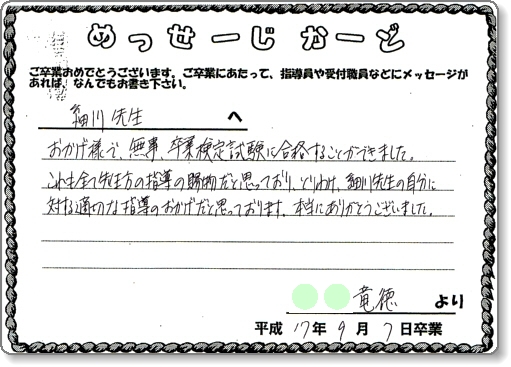 めっせーじ かーど
ご卒業おめでとうございます。ご卒業にあたって、指導員や受付職員などにメッセージが
あれば、なんでもお書き下さい。
細川先生 へ
おかげ様で、無事、卒業検定試験に合格することができました。
これも全て先生方の指導の賜物だと思っており、とりわけ、細川先生の自分に
対する適切な指導のおかげだと思っております。本当にありがとうございました。
竜徳 より
平成 17年 9月 7日卒業